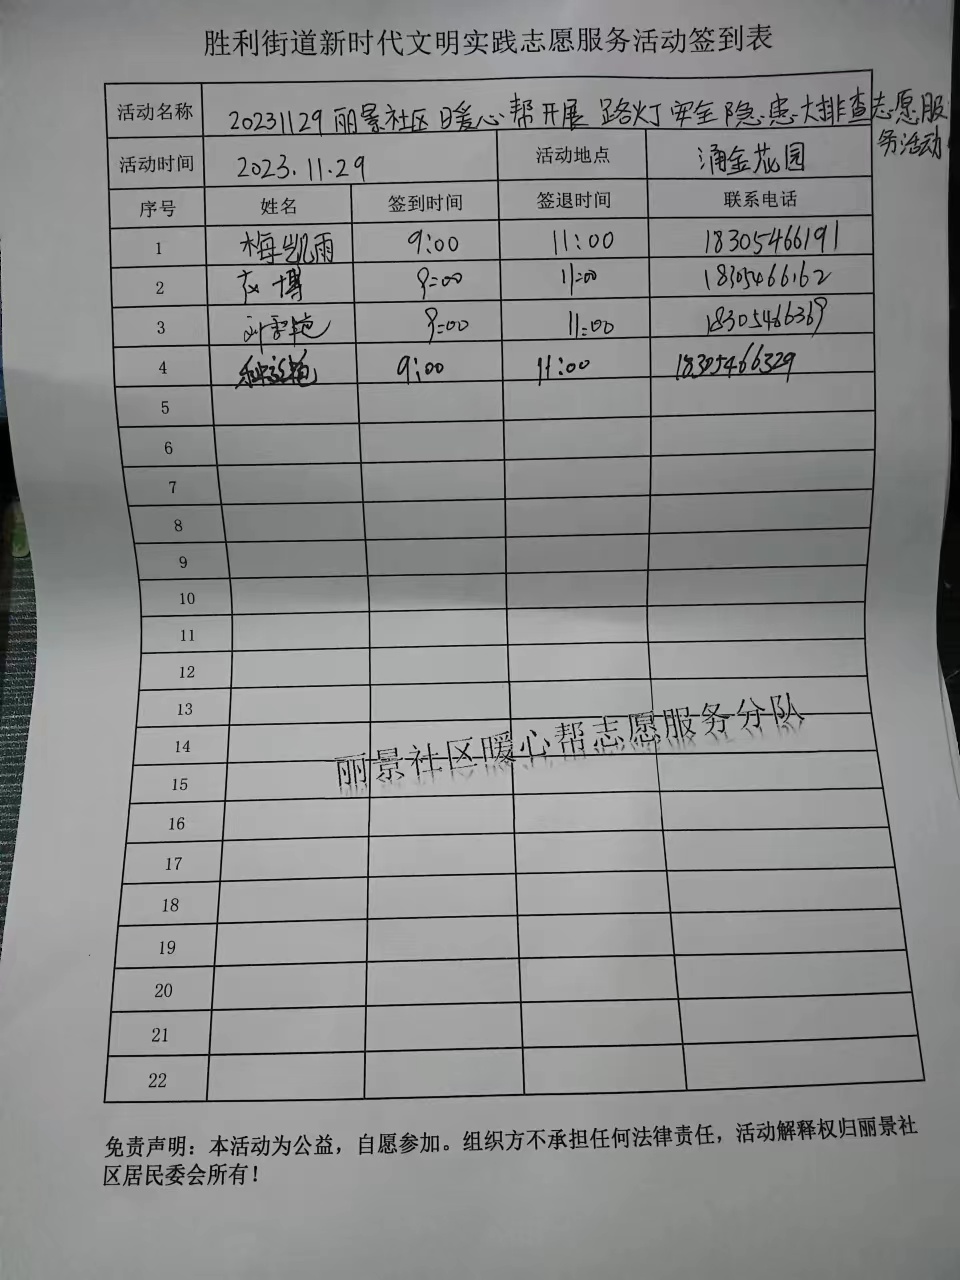 胜利街道新时代文明实践志愿服务活动签到表
活动名称 20231129丽景社区暖心帮开展 路灯安全隐患大排查志愿服
务活动
活动时间 2023.11.29 活动地点 涌金花园
序号 姓名 签到时间 签退时间 联系电话
1 梅凯雨 9:00 11:00 18305466191
2 衣博 9:00 11:00 18305466162
3 9:00 11:00 18305466369
4 9:00 11:00 18305466329
5
6
7
8
9
10
11
12
13
14
丽景社区暖心帮志愿服务分队
15
16
17
18
19
20
21
22
免责声明：本活动为公益，自愿参加。组织方不承担任何法律责任，活动解释权归丽景社
区居民委会所有！